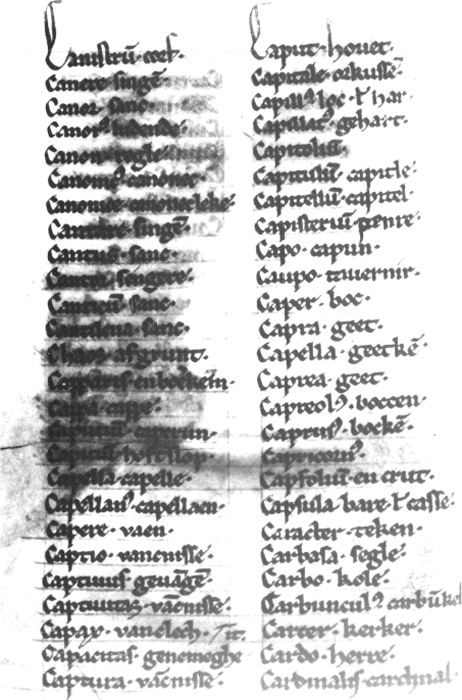 Canistrū· coɹf·
Canere· singē·
Canor· sanc·
Canorꝰ· ludende·
Canon· regle·
Canonicꝰ· canonec·
Canonice· canonecleke·
Cantare· singē·
Cantus· sanc·
Cantor· sengere·
Canticū· sanc·
Cantilena· sanc·
Chaos· afgrunt·
Cappa· cappe·
caperun·
Capella· capelle·
Capellanꝰ· capellaen·
Capere· vaen·
Captio· vancnisse·
Captiuus· geuāgē·
Captiuitas· vācnisse·
Capax· vanclech·
Capacitas· genomeghe
Captura· vācnisse·
Caput· houet·
Capitale· orkussē·
Capillꝰ· loc· ł har·
Capillatꝰ· gehart·
Capitoliū·
Capitulū· capitle·
Capitellū· capitel·
Capisteriū·
Capo· capun·
Caupo· tauernir·
Caper· boc·
Capra· geet·
Capella· geetkē·
Caprea· geet·
Capreolꝰ· boccen·
Caprinꝰ· bockē·
Capricornꝰ·
Capfoliū· en crut·
Capsula· bare· ł casse·
Caracter· teken·
Carbasa· segle·
Carbo· kole·
Carbunculꝰ· carbūkel
Carcer· kerker·
Cardo· herre·
Cardinalis· cardinal·